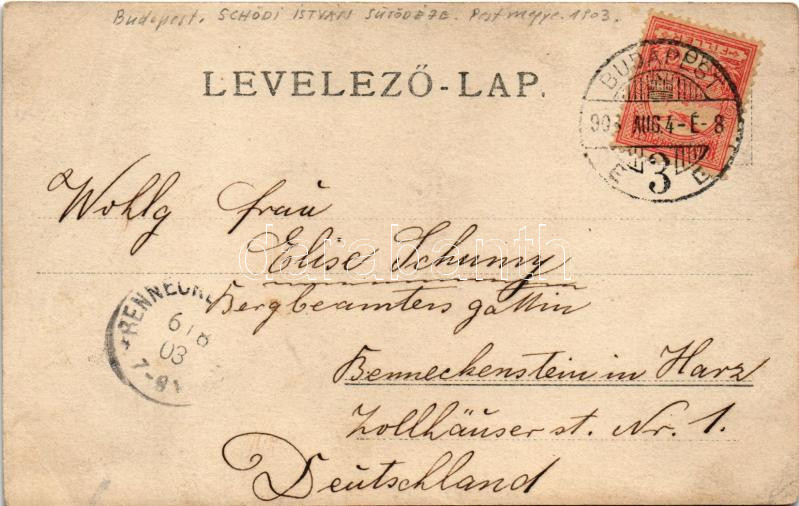 Budapest. SCHÖDI ISTVÁN SÜTÖDÉJE. Pest megye. 1903.
LEVELEZŐ-LAP.
FILLÉR
BUDAPEST
903 AUG. 4 - É - 8
3
Wohlg Frau
Elise Schumy
Bergbeamtersgattin
Benneckenstein in Harz
Zollhäuserst. Nr. 1.
Deutschland
6/8
03
7-8V
darabanth